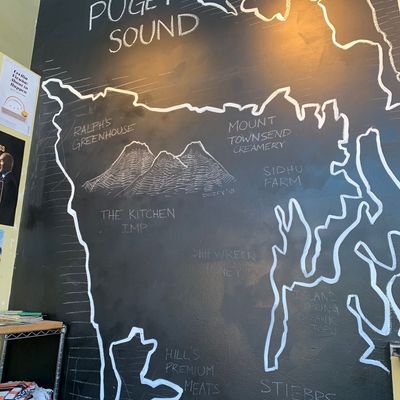 PUGET
SOUND
RALPH'S
GREENHOUSE
MOUNT
TOWNSEND
CREAMERY
SIDHU
FARM
THE KITCHEN
IMP
SHIPWRECK
HONEY
HILL'S
PREMIUM
MEATS
STIEBRS